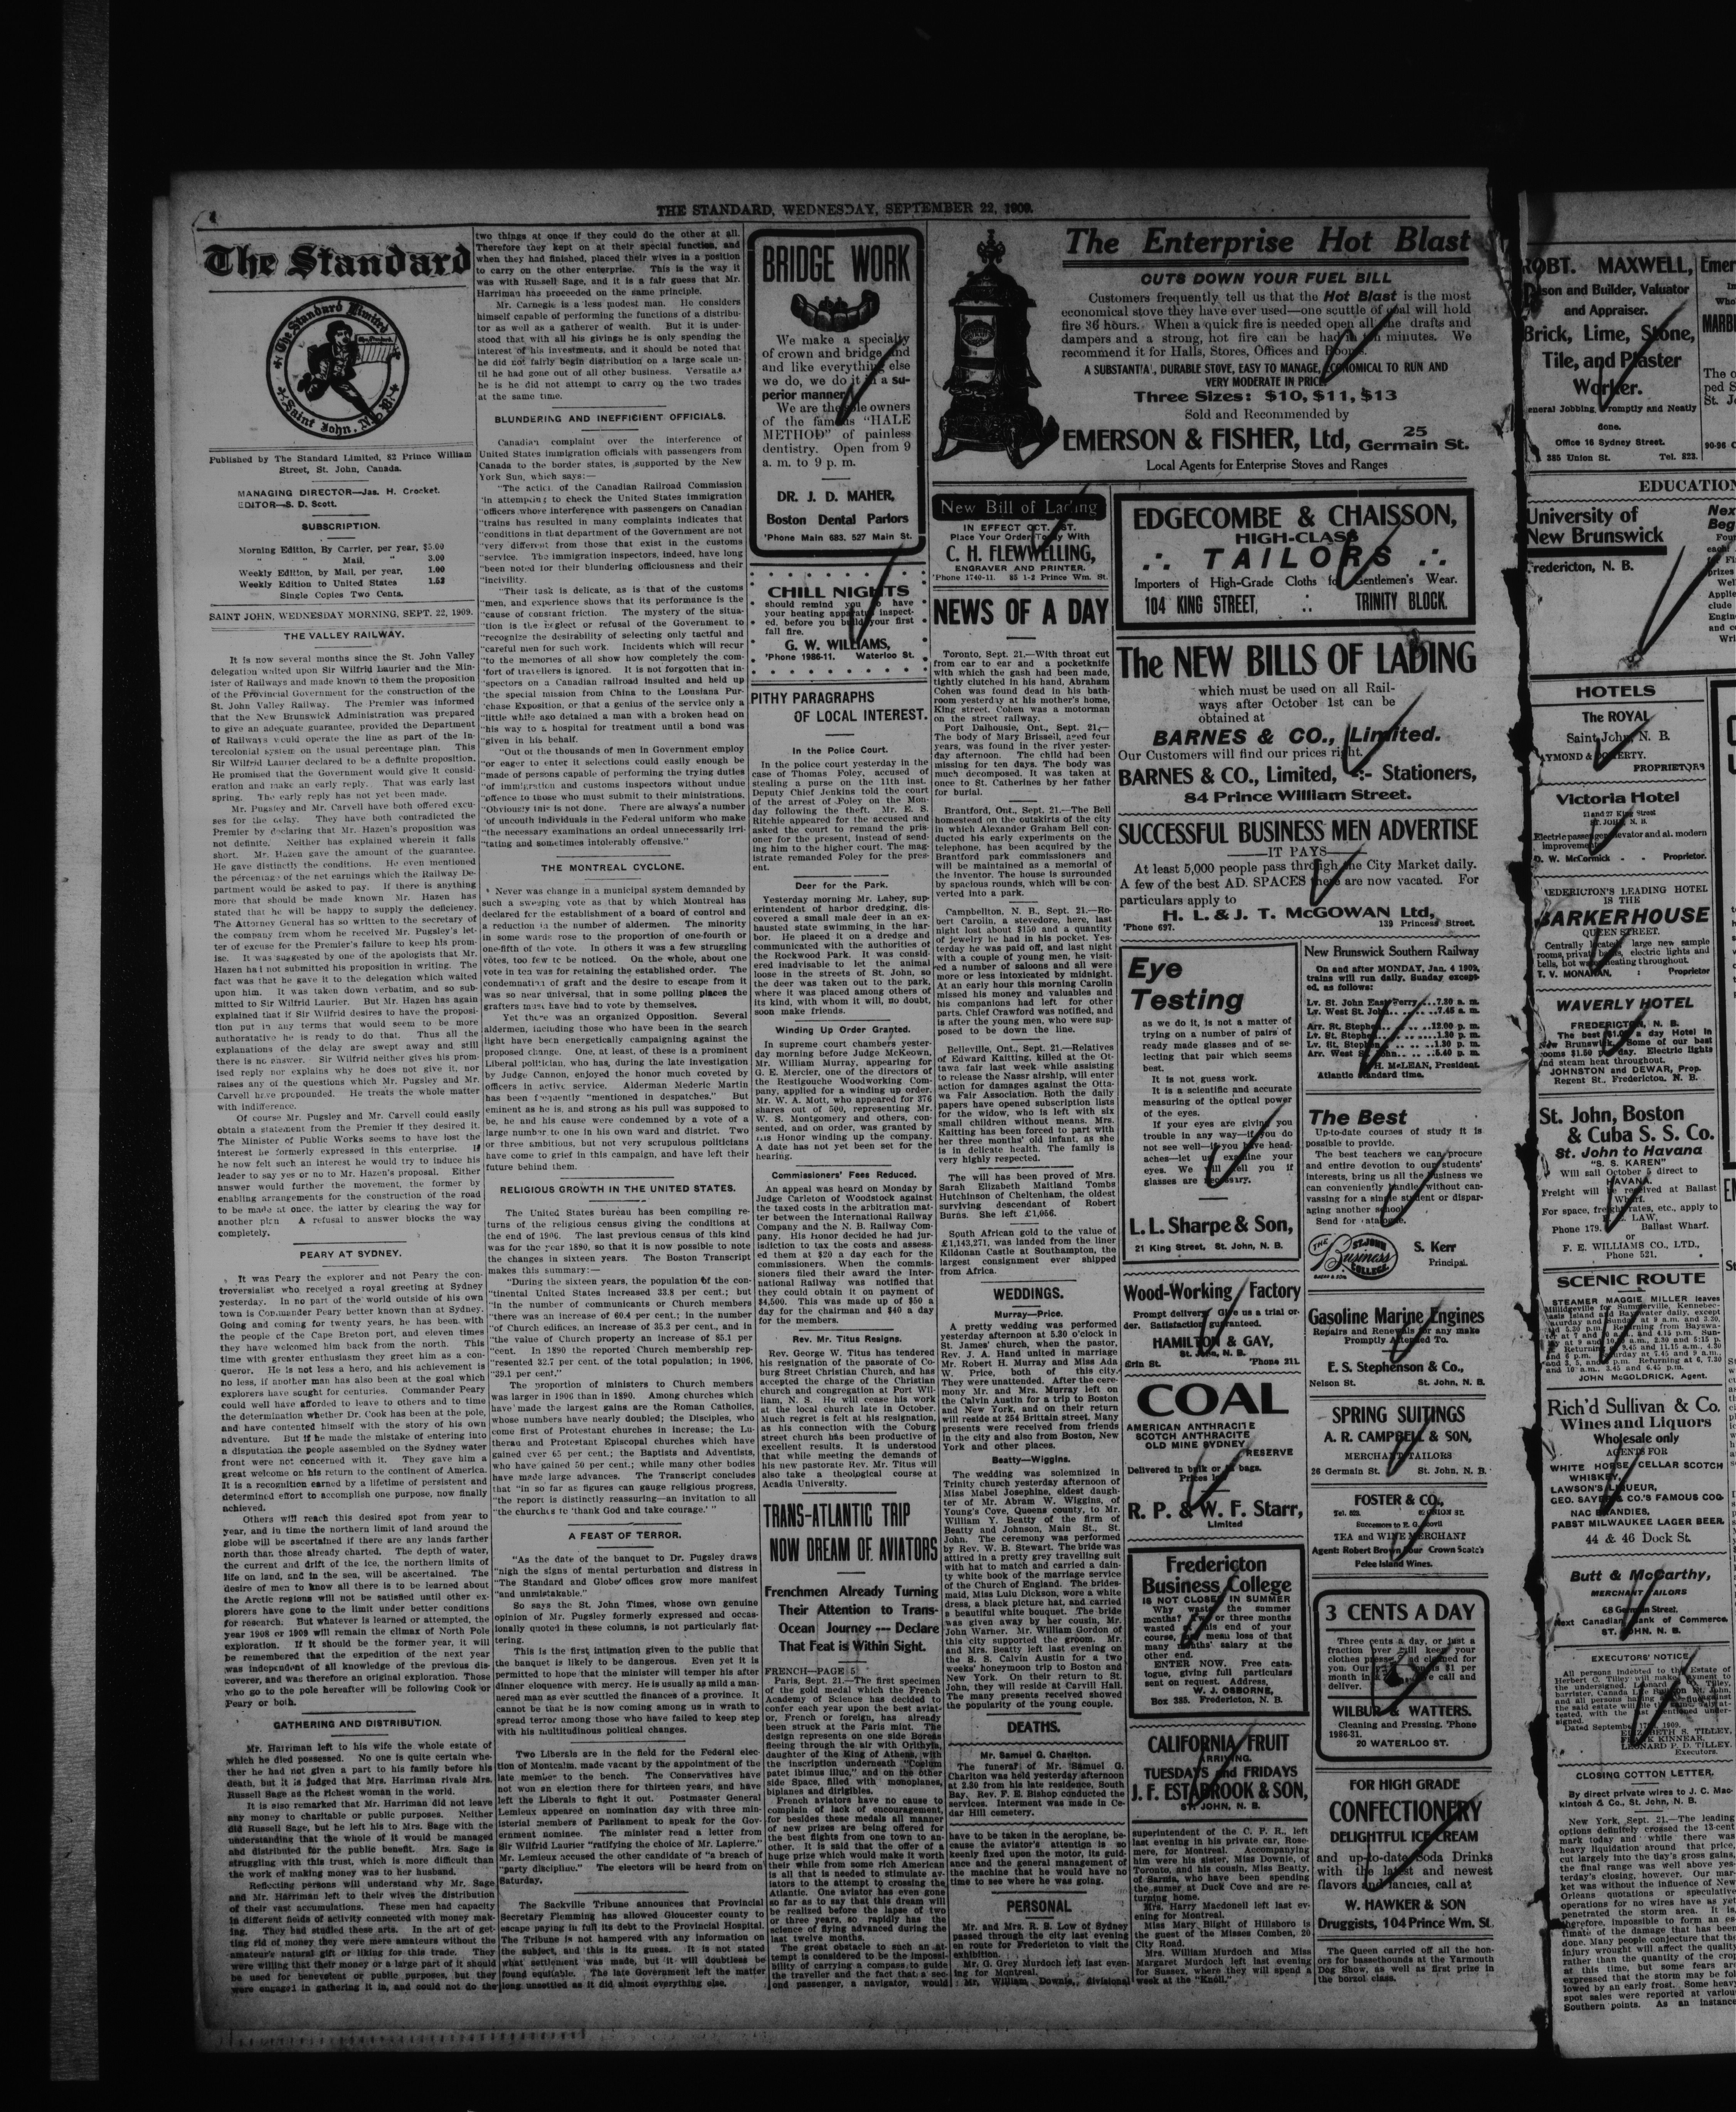 4
THE STANDARD, WEDNESDAY, SEPTEMBER 22, 1909.
The Standard
The Standard Limited
Saint John, N. B.
Published by The Standard Limited, 82 Prince William
Street, St. John, Canada.
MANAGING DIRECTOR—Jas. H. Crocket.
EDITOR—S. D. Scott.
SUBSCRIPTION.
Morning Edition, By Carrier, per year, $5.00
" " Mail, " 3.00
Weekly Edition, by Mail, per year, 1.00
Weekly Edition to United States 1.52
Single Copies Two Cents.
SAINT JOHN, WEDNESDAY MORNING, SEPT. 22, 1909.
THE VALLEY RAILWAY.
It is now several months since the St. John Valley
delegation waited upon Sir Wilfrid Laurier and the Min-
ister of Railways and made known to them the proposition
of the Provincial Government for the construction of the
St. John Valley Railway. The Premier was informed
that the New Brunswick Administration was prepared
to give an adequate guarantee, provided the Department
of Railways would operate the line as part of the In-
tercolonial system on the usual percentage plan. This
Sir Wilfrid Laurier declared to be a definite proposition.
He promised that the Government would give it consid-
eration and make an early reply. That was early last
spring. The early reply has not yet been made.
Mr. Pugsley and Mr. Carvell have both offered excu-
ses for the delay. They have both contradicted the
Premier by declaring that Mr. Hazen's proposition was
not definite. Neither has explained wherein it falls
short. Mr. Hazen gave the amount of the guarantee.
He gave distinctly the conditions. He even mentioned
the percentage of the net earnings which the Railway De-
partment would be asked to pay. If there is anything
more that should be made known Mr. Hazen has
stated that he will be happy to supply the deficiency.
The Attorney General has so written to the secretary of
the company from whom he received Mr. Pugsley's let-
ter of excuse for the Premier's failure to keep his prom-
ise. It was suggested by one of the apologists that Mr.
Hazen had not submitted his proposition in writing. The
fact was that he gave it to the delegation which waited
upon him. It was taken down verbatim, and so sub-
mitted to Sir Wilfrid Laurier. But Mr. Hazen has again
explained that if Sir Wilfrid desires to have the proposi-
tion put in any terms that would seem to be more
authoratative he is ready to do that. Thus all the
explanations of the delay are swept away and still
there is no answer. Sir Wilfrid neither gives his prom-
ised reply nor explains why he does not give it, nor
raises any of the questions which Mr. Pugsley and Mr.
Carvell have propounded. He treats the whole matter
with indifference.
Of course Mr. Pugsley and Mr. Carvell could easily
obtain a statement from the Premier if they desired it.
The Minister of Public Works seems to have lost the
interest he formerly expressed in this enterprise. If
he now felt such an interest he would try to induce his
leader to say yes or no to Mr. Hazen's proposal. Either
answer would further the movement, the former by
enabling arrangements for the construction of the road
to be made at once, the latter by clearing the way for
another plan A refusal to answer blocks the way
completely.
PEARY AT SYDNEY.
It was Peary the explorer and not Peary the con-
troversialist who received a royal greeting at Sydney
yesterday. In no part of the world outside of his own
town is Commander Peary better known than at Sydney.
Going and coming for twenty years, he has been with
the people of the Cape Breton port, and eleven times
they have welcomed him back from the north. This
time with greater enthusiasm they greet him as a con-
queror. He is not less a hero, and his achievement is
no less, if another man has also been at the goal which
explorers have sought for centuries. Commander Peary
could well have afforded to leave to others and to time
the determination whether Dr. Cook has been at the pole,
and have contented himself with the story of his own
adventure. But if he made the mistake of entering into
a disputation the people assembled on the Sydney water
front were not concerned with it. They gave him a
great welcome on his return to the continent of America.
It is a recognition earned by a lifetime of persistent and
determined effort to accomplish one purpose, now finally
achieved.
Others will reach this desired spot from year to
year, and in time the northern limit of land around the
globe will be ascertained if there are any lands farther
north than those already charted. The depth of water,
the current and drift of the ice, the northern limits of
life on land, and in the sea, will be ascertained. The
desire of men to know all there is to be learned about
the Arctic regions will not be satisfied until other ex-
plorers have gone to the limit under better conditions
for research. But whatever is learned or attempted, the
year 1908 or 1909 will remain the climax of North Pole
exploration. If it should be the former year, it will
be remembered that the expedition of the next year
was independent of all knowledge of the previous dis-
coverer, and was therefore an original exploration. Those
who go to the pole hereafter will be following Cook or
Peary or both.
GATHERING AND DISTRIBUTION.
Mr. Harriman left to his wife the whole estate of
which he died possessed. No one is quite certain whe-
ther he had not given a part to his family before his
death, but it is judged that Mrs. Harriman rivals Mrs.
Russell Sage as the richest woman in the world.
It is also remarked that Mr. Harriman did not leave
any money to charitable or public purposes. Neither
did Russell Sage, but he left his to Mrs. Sage with the
understanding that the whole of it would be managed
and distributed for the public benefit. Mrs. Sage is
struggling with this trust, which is more difficult than
the work of making money was to her husband.
Reflecting persons will understand why Mr. Sage
and Mr. Harriman left to their wives the distribution
of their vast accumulations. These men had capacity
in different fields of activity connected with money mak-
ing. They had studied these arts. In the art of get-
ting rid of money they were mere amateurs without the
amateur's natural gift or liking for this trade. They
were willing that their money or a large part of it should
be used for benevolent or public purposes, but they
were engaged in gathering it in, and could not do the
two things at once if they could do the other at all.
Therefore they kept on at their special function, and
when they had finished, placed their wives in a position
to carry on the other enterprise. This is the way it
was with Russell Sage, and it is a fair guess that Mr.
Harriman has proceeded on the same principle.
Mr. Carnegie is a less modest man. He considers
himself capable of performing the functions of a distribu-
tor as well as a gatherer of wealth. But it is under-
stood that with all his givings he is only spending the
interest of his investments, and it should be noted that
he did not fairly begin distribution on a large scale un-
til he had gone out of all other business. Versatile as
he is he did not attempt to carry on the two trades
at the same time.
BLUNDERING AND INEFFICIENT OFFICIALS.
Canadian complaint over the interference of
United States immigration officials with passengers from
Canada to the border states, is supported by the New
York Sun, which says:—
"The action of the Canadian Railroad Commission
"in attempting to check the United States immigration
"officers whose interference with passengers on Canadian
"trains has resulted in many complaints indicates that
"conditions in that department of the Government are not
"very different from those that exist in the customs
"service. The immigration inspectors, indeed, have long
"been noted for their blundering officiousness and their
"incivility.
"Their task is delicate, as is that of the customs
"men, and experience shows that its performance is the
"cause of constant friction. The mystery of the situa-
"tion is the neglect or refusal of the Government to
"recognize the desirability of selecting only tactful and
"careful men for such work. Incidents which will recur
"to the memories of all show how completely the com-
"fort of travellers is ignored. It is not forgotten that in-
"spectors on a Canadian railroad insulted and held up
"the special mission from China to the Lousiana Pur-
"chase Exposition, or that a genius of the service only a
"little while ago detained a man with a broken head on
"his way to a hospital for treatment until a bond was
"given in his behalf.
"Out of the thousands of men in Government employ
"or eager to enter it selections could easily enough be
"made of persons capable of performing the trying duties
"of immigration and customs inspectors without undue
"offence to those who must submit to their ministrations.
"Obviously this is not done. There are always a number
"of uncouth individuals in the Federal uniform who make
"the necessary examinations an ordeal unnecessarily irri-
"tating and sometimes intolerably offensive."
THE MONTREAL CYCLONE.
Never was change in a municipal system demanded by
such a sweeping vote as that by which Montreal has
declared for the establishment of a board of control and
a reduction in the number of aldermen. The minority
in some wards rose to the proportion of one-fourth or
one-fifth of the vote. In others it was a few struggling
votes, too few to be noticed. On the whole, about one
vote in ten was for retaining the established order. The
condemnation of graft and the desire to escape from it
was so near universal, that in some polling places the
grafters must have had to vote by themselves.
Yet there was an organized Opposition. Several
aldermen, including those who have been in the search
light have been energetically campaigning against the
proposed change. One, at least, of these is a prominent
Liberal politician, who has, during the late investigation
by Judge Cannon, enjoyed the honor much coveted by
officers in active service. Alderman Mederic Martin
has been frequently "mentioned in despatches." But
eminent as he is, and strong as his pull was supposed to
be, he and his cause were condemned by a vote of a
large number to one in his own ward and district. Two
or three ambitious, but not very scrupulous politicians
have come to grief in this campaign, and have left their
future behind them.
RELIGIOUS GROWTH IN THE UNITED STATES.
The United States bureau has been compiling re-
turns of the religious census giving the conditions at
the end of 1906. The last previous census of this kind
was for the year 1890, so that it is now possible to note
the changes in sixteen years. The Boston Transcript
makes this summary:—
"During the sixteen years, the population of the con-
"tinental United States increased 33.8 per cent.; but
"in the number of communicants or Church members
"there was an increase of 60.4 per cent.; in the number
"of Church edifices, an increase of 35.3 per cent., and in
"the value of Church property an increase of 85.1 per
"cent. In 1890 the reported Church membership rep-
"resented 32.7 per cent. of the total population; in 1906,
"39.1 per cent."
The proportion of ministers to Church members
was larger in 1906 than in 1890. Among churches which
have made the largest gains are the Roman Catholics,
whose numbers have nearly doubled; the Disciples, who
come first of Protestant churches in increase; the Lu-
theran and Protestant Episcopal churches which have
gained over 65 per cent.; the Baptists and Adventists,
who have gained 50 per cent.; while many other bodies
have made large advances. The Transcript concludes
that "in so far as figures can gauge religious progress,
"the report is distinctly reassuring—an invitation to all
"the churches to 'thank God and take courage.' "
A FEAST OF TERROR.
"As the date of the banquet to Dr. Pugsley draws
"nigh the signs of mental perturbation and distress in
"The Standard and Globe offices grow more manifest
"and unmistakable."
So says the St. John Times, whose own genuine
opinion of Mr. Pugsley formerly expressed and occas-
ionally quoted in these columns, is not particularly flat-
tering.
This is the first intimation given to the public that
the banquet is likely to be dangerous. Even yet it is
permitted to hope that the minister will temper his after
dinner eloquence with mercy. He is usually as mild a man-
nered man as ever scuttled the finances of a province. It
cannot be that he is now coming among us in wrath to
spread terror among those who have failed to keep step
with his multitudinous political changes.
Two Liberals are in the field for the Federal elec-
tion of Montcalm, made vacant by the appointment of the
late member to the bench. The Conservatives have
not won an election there for thirteen years, and have
left the Liberals to fight it out. Postmaster General
Lemieux appeared on nomination day with three min-
isterial members of Parliament to speak for the Gov-
ernment nominee. The minister read a letter from
Sir Wilfrid Laurier "ratifying the choice of Mr. Lapierre."
Mr. Lemieux accused the other candidate of "a breach of
"party discipline." The electors will be heard from on
Saturday.
The Sackville Tribune announces that Provincial
Secretary Flemming has allowed Gloucester county to
escape paying in full its debt to the Provincial Hospital.
The Tribune is not hampered with any information on
the subject, and this is its guess. It is not stated
what settlement was made, but it will doubtless be
found equitable. The late Government left the matter
long unsettled as it did almost everything else.
BRIDGE WORK
We make a specialty
of crown and bridge and
and like everything else
we do, we do it in a su-
perior manner.
We are the sole owners
of the famous "HALE
METHOD" of painless
dentistry. Open from 9
a. m. to 9 p. m.
DR. J. D. MAHER,
Boston Dental Parlors
'Phone Main 683. 527 Main St.
CHILL NIGHTS
should remind you to have
your heating apparatus inspect-
ed, before you build your first
fall fire.
G. W. WILLIAMS,
'Phone 1986-11. Waterloo St.
PITHY PARAGRAPHS
OF LOCAL INTEREST.
In the Police Court.
In the police court yesterday in the
case of Thomas Foley, accused of
stealing a purse on the 11th inst.
Deputy Chief Jenkins told the court
of the arrest of Foley on the Mon-
day following the theft. Mr. E. S.
Ritchie appeared for the accused and
asked the court to remand the pris-
oner for the present, instead of send-
ing him to the higher court. The mag-
istrate remanded Foley for the pres-
ent.
Deer for the Park.
Yesterday morning Mr. Lahey, sup-
erintendent of harbor dredging, dis-
covered a small male deer in an ex-
hausted state swimming in the har-
bor. He placed it on a dredge and
communicated with the authorities of
the Rockwood Park. It was consid-
ered inadvisable to let the animal
loose in the streets of St. John, so
the deer was taken out to the park,
where it was placed among others of
its kind, with whom it will, no doubt,
soon make friends.
Winding Up Order Granted.
In supreme court chambers yester-
day morning before Judge McKeown,
Mr. William Murray, appearing for
G. E. Mercier, one of the directors of
the Restigouche Woodworking Com-
pany, applied for a winding up order.
Mr. W. A. Mott, who appeared for 376
shares out of 500, representing Mr.
W. S. Montgomery and others, con-
sented, and on order, was granted by
His Honor winding up the company.
A date has not yet been set for the
hearing.
Commissioners' Fees Reduced.
An appeal was heard on Monday by
Judge Carleton of Woodstock against
the taxed costs in the arbitration mat-
ter between the International Railway
Company and the N. B. Railway Com-
pany. His Honor decided he had jur-
isdiction to tax the costs and assess-
ed them at $20 a day each for the
commissioners. When the commis-
sioners filed their award the Inter-
national Railway was notified that
they could obtain it on payment of
$4,500. This was made up of $50 a
day for the chairman and $40 a day
for the members.
Rev. Mr. Titus Resigns.
Rev. George W. Titus has tendered
his resignation of the pasorate of Co-
burg Street Christian Church, and has
accepted the charge of the Christian
church and congregation at Port Wil-
liam, N. S. He will cease his work
at the local church late in October.
Much regret is felt at his resignation,
as his connection with the Coburg
street church has been productive of
excellent results. It is understood
that while meeting the demands of
his new pastorate Rev. Mr. Titus will
also take a theological course at
Acadia University.
TRANS-ATLANTIC TRIP
NOW DREAM OF AVIATORS
Frenchmen Already Turning
Their Attention to Trans-
Ocean Journey --- Declare
That Feat is Within Sight.
FRENCH—PAGE 5
Paris, Sept. 21.—The first specimen
of the gold medal which the French
Academy of Science has decided to
confer each year upon the best aviat-
or, French or foreign, has already
been struck at the Paris mint. The
design represents on one side Boreas
fleeing through the air with Orithyn,
daughter of the King of Athens, with
the inscription underneath "Coelum
patet ibimus illuc," and on the other
side Space, filled with monoplanes,
biplanes and dirigibles.
French aviators have no cause to
complain of lack of encouragement,
for besides these medals all manner
of new prizes are being offered for
the best flights from one town to an-
other. It is said that the offer of a
huge prize which would make it worth
their while from some rich American
is all that is needed to stimulate av-
iators to the attempt to crossing the
Atlantic. One aviator has even gone
so far as to say that this dream will
be realized before the lapse of two
or three years, so rapidly has the
science of flying advanced during the
last twelve months.
The great obstacle to such an at-
tempt is considered to be the imposi-
bility of carrying a compass to guide
the traveller and the fact that a sec-
ond passenger, a navigator, would
The Enterprise Hot Blast
CUTS DOWN YOUR FUEL BILL
Customers frequently tell us that the Hot Blast is the most
economical stove they have ever used—one scuttle of coal will hold
fire 36 hours. When a quick fire is needed open all the drafts and
dampers and a strong, hot fire can be had in ten minutes. We
recommend it for Halls, Stores, Offices and Rooms.
A SUBSTANTIAL, DURABLE STOVE, EASY TO MANAGE, ECONOMICAL TO RUN AND
VERY MODERATE IN PRICE.
Three Sizes: $10, $11, $13
Sold and Recommended by
EMERSON & FISHER, Ltd, 25 Germain St.
Local Agents for Enterprise Stoves and Ranges
New Bill of Lading
IN EFFECT OCT. 1ST.
Place Your Order Today With
C. H. FLEWWELLING,
ENGRAVER AND PRINTER.
'Phone 1740-11. 85 1-2 Prince Wm. St.
NEWS OF A DAY
Toronto, Sept. 21.—With throat cut
from ear to ear and a pocketknife
with which the gash had been made,
tightly clutched in his hand, Abraham
Cohen was found dead in his bath-
room yesterday at his mother's home,
King street. Cohen was a motorman
on the street railway.
Port Dalhousie, Ont., Sept. 21.—
The body of Mary Brisseil, aged four
years, was found in the river yester-
day afternoon. The child had been
missing for ten days. The body was
much decomposed. It was taken at
once to St. Catherines by her father
for burial.
Brantford, Ont., Sept. 21.—The Bell
homestead on the outskirts of the city
in which Alexander Graham Bell con-
ducted his early experiments on the
telephone, has been acquired by the
Brantford park commissioners and
will be maintained as a memorial of
the inventor. The house is surrounded
by spacious rounds, which will be con-
verted into a park.
Campbellton, N. B., Sept. 21.—Ro-
bert Carolin, a stevedore, here, last
night lost about $150 and a quantity
of jewelry he had in his pocket. Yes-
terday he was paid off, and last night
with a couple of young men, he visit-
ed a number of saloons and all were
more or less intoxicated by midnight.
At an early hour this morning Carolin
missed his money and valuables and
his companions had left for other
parts. Chief Crawford was notified, and
is after the young men, who were sup-
posed to be down the line.
Belleville, Ont., Sept. 21.—Relatives
of Edward Kaitting, killed at the Ot-
tawa fair last week while assisting
to release the Nassr airship, will enter
action for damages against the Otta-
wa Fair Association. Both the daily
papers have opened subscription lists
for the widow, who is left with six
small children without means. Mrs.
Kaitting has been forced to part with
her three months' old infant, as she
is in delicate health. The family is
very highly respected.
The will has been proved of Mrs.
Sarah Elizabeth Maitland Tombs
Hutchinson of Cheltenham, the oldest
surviving descendant of Robert
Burns. She left £1,056.
South African gold to the value of
£1,143,271, was landed from the liner
Kildonan Castle at Southampton, the
largest consignment ever shipped
from Africa.
WEDDINGS.
Murray—Price.
A pretty wedding was performed
yesterday afternoon at 5.30 o'clock in
St. James' church, when the pastor,
Rev. J. A. Hand united in marriage
Mr. Robert H. Murray and Miss Ada
W. Price, both of this city.
They were unattended. After the cere-
mony Mr. and Mrs. Murray left on
the Calvin Austin for a trip to Boston
and New York, and on their return
will reside at 254 Brittain street. Many
presents were received from friends
in the city and also from Boston, New
York and other places.
Beatty—Wiggins.
The wedding was solemnized in
Trinity church yesterday afternoon of
Miss Mabel Josephine, eldest daugh-
ter of Mr. Abram W. Wiggins, of
Young's Cove, Queens county, to Mr.
William Y. Beatty of the firm of
Beatty and Johnson, Main St., St.
John. The ceremony was performed
by Rev. W. B. Stewart. The bride was
attired in a pretty grey travelling suit
with hat to match and carried a dain-
ty white book of the marriage service
of the Church of England. The brides-
maid, Miss Lulu Dickson, wore a white
dress, a black picture hat, and carried
a beautiful white bouquet. The bride
was given away by her cousin, Mr.
John Warner. Mr. William Gordon of
this city supported the groom. Mr.
and Mrs. Beatty left last evening on
the S. S. Calvin Austin for a two
weeks' honeymoon trip to Boston and
New York. On their return to St.
John, they will reside at Carvill Hall.
The many presents received showed
the popularity of the young couple.
DEATHS.
Mr. Samuel G. Charlton.
The funeral of Mr. Samuel G.
Charlton was held yesterday afternoon
at 2.30 from his late residence, South
Bay. Rev. F. E. Bishop conducted the
services. Interment was made in Ce-
dar Hill cemetery.
have to be taken in the aeroplane, be-
cause the aviator's attention is so
keenly fixed upon the motor, its guid-
ance and the general management of
the machine that he would have no
time to see where he was going.
PERSONAL
Mr. and Mrs. R. B. Low of Sydney
passed through the city last evening
en route for Fredericton to visit the
exhibition.
Mr. G. Grey Murdoch left last even-
ing for Montreal.
Mr. William Downie, divisional
superintendent of the C. P. R., left
last evening in his private car, Rose-
mere, for Montreal. Accompanying
him were his sister, Miss Downie, of
Toronto, and his cousin, Miss Beatty,
of Sarnia, who have been spending
the sumer at Duck Cove and are re-
turning home.
Mrs. Harry Macdonell left last ev-
ening for Montreal.
Miss Mary Blight of Hillsboro is
the guest of the Misses Comben, 20
City Road.
Mrs. William Murdoch and Miss
Margaret Murdoch left last evening
for Sussex, where they will spend a
week at the "Knoll."
EDGECOMBE & CHAISSON,
HIGH-CLASS
TAILORS
Importers of High-Grade Cloths for Gentlemen's Wear.
104 KING STREET, TRINITY BLOCK.
The NEW BILLS OF LADING
which must be used on all Rail-
ways after October 1st can be
obtained at
BARNES & CO., Limited.
Our Customers will find our prices right.
BARNES & CO., Limited, -:- Stationers,
84 Prince William Street.
SUCCESSFUL BUSINESS MEN ADVERTISE
IT PAYS
At least 5,000 people pass through the City Market daily.
A few of the best AD. SPACES there are now vacated. For
particulars apply to
H. L. & J. T. McGOWAN Ltd,
'Phone 697. 139 Princess Street.
Eye
Testing
as we do it, is not a matter of
trying on a number of pairs of
ready made glasses and of se-
lecting that pair which seems
best.
It is not guess work.
It is a scientific and accurate
measuring of the optical power
of the eyes.
If your eyes are giving you
trouble in any way—if you do
not see well—if you have head-
aches—let us examine your
eyes. We will tell you if
glasses are necessary.
L. L. Sharpe & Son,
21 King Street, St. John, N. B.
Wood-Working Factory
Prompt delivery. Give us a trial or-
der. Satisfaction guaranteed.
HAMILTON & GAY,
St. John, N. B.
Erin St. 'Phone 211.
COAL
AMERICAN ANTHRACITE
SCOTCH ANTHRACITE
OLD MINE SYDNEY
RESERVE
Delivered in bulk or in bags.
Prices low.
R. P. & W. F. Starr,
Limited
Fredericton
Business College
IS NOT CLOSED IN SUMMER
Why waste the summer
months? Two or three months
wasted at this end of your
course, may mean loss of that
many months' salary at the
other end.
ENTER NOW. Free cata-
logue, giving full particulars
sent on request. Address,
W. J. OSBORNE,
Box 285. Fredericton, N. B.
CALIFORNIA FRUIT
ARRIVING.
TUESDAYS and FRIDAYS
J. F. ESTABROOK & SON,
ST. JOHN, N. B.
New Brunswick Southern Railway
On and after MONDAY, Jan. 4 1909,
trains will run daily, Sunday except-
ed, as follows:
Lv. St. John East Ferry...7.30 a. m.
Lv. West St. John.. ......7.45 a. m.
Arr. St. Stephen ........12.00 p. m.
Lv. St. Stephen ..........1.30 p. m.
Lv. St. Stephen.. ........1.30 p. m.
Arr. West St. John.. .....5.40 p. m.
H. H. McLEAN, President.
Atlantic standard time.
The Best
Up-to-date courses of study it is
possible to provide.
The best teachers we can procure
and entire devotion to our students'
interests, bring us all the business we
can conveniently handle without can-
vassing for a single student or dispar-
aging another school.
Send for catalogue.
THE ST. JOHN Business COLLEGE
S. Kerr
Principal.
Gasoline Marine Engines
Repairs and Renewals for any make
Promptly Attended To.
E. S. Stephenson & Co.,
Nelson St. St. John, N. B.
SPRING SUITINGS
A. R. CAMPBELL & SON,
MERCHANT TAILORS
26 Germain St. St. John, N. B.
FOSTER & CO.,
UNION ST.
TEA and WINE MERCHANT
Agent: Robert Brown Four Crown Scotch
Pelee Island Wines.
3 CENTS A DAY
Three cents a day, or just a
fraction over will keep your
clothes pressed and cleaned for
you. Our is $1 per
month in call and
deliver.
WILBUR & WATTERS.
Cleaning and Pressing. 'Phone
1986-31.
20 WATERLOO ST.
FOR HIGH GRADE
CONFECTIONERY
DELIGHTFUL ICE CREAM
and up-to-date Soda Drinks
with the latest and newest
flavors and fancies, call at
W. HAWKER & SON
Druggists, 104 Prince Wm. St.
The Queen carried off all the hon-
ors for bassethounds at the Yarmouth
Dog Show, as well as first prize in
the borzoi class.
ROBT. MAXWELL,
Mason and Builder, Valuator
and Appraiser.
Brick, Lime, Stone,
Tile, and Plaster
Worker.
General Jobbing Promptly and Neatly
done.
Office 16 Sydney Street.
385 Union St. Tel. 823.
EDUCATION
University of
New Brunswick
Fredericton, N. B.
HOTELS
The ROYAL
Saint John, N. B.
RAYMOND & DOHERTY.
PROPRIETORS
Victoria Hotel
21 and 27 King Street
ST. JOHN, N. B.
Electric passenger elevator and all modern
improvements.
D. W. McCormick - - Proprietor.
FREDERICTON'S LEADING HOTEL
IS THE
BARKER HOUSE
QUEEN STREET.
Centrally located; large new sample
rooms, private baths, electric lights and
bells, hot water heating throughout.
T. V. MONAHAN, : Proprietor
WAVERLY HOTEL
FREDERICTON, N. B.
The best $1.00 a day Hotel in
New Brunswick. Some of our best
rooms $1.50 per day. Electric lights
and steam heat throughout.
JOHNSTON and DEWAR, Prop.
Regent St., Fredericton, N. B.
St. John, Boston
& Cuba S. S. Co.
St. John to Havana
"S. S. KAREN"
Will sail October 5 direct to
HAVANA.
Freight will be received at Ballast
Wharf.
For space, freight rates, etc., apply to
LAW,
Phone 179. Ballast Wharf.
or
F. E. WILLIAMS CO., LTD.,
Phone 521.
SCENIC ROUTE
STEAMER MAGGIE MILLER leaves
Millidgeville for Summerville, Kennebec-
asis Island and Bayswater daily, except
Saturday and Sunday at 9 a.m. and 3.30,
and 5.30 p.m. Returning from Bayswa-
JOHN McGOLDRICK, Agent.
Rich'd Sullivan & Co.
Wines and Liquors
Wholesale only
AGENTS FOR
WHITE HORSE CELLAR SCOTCH
WHISKEY,
LAWSON'S LIQUEUR,
GEO. SAYER & CO.'S FAMOUS COG-
NAC BRANDIES,
PABST MILWAUKEE LAGER BEER.
44 & 46 Dock St.
Butt & McCarthy,
MERCHANT TAILORS
68 Germain Street.
Next Canadian Bank of Commerce
ST. JOHN. N. B.
EXECUTORS' NOTICE.
All persons indebted to the Estate of
Herbert G. Tilley will make payment to
Dated September 17th, 1909.
ELIZABETH S. TILLEY,
FRANK KINNEAR,
LEONARD P. D. TILLEY.
Executors.
CLOSING COTTON LETTER.
By direct private wires to J. C. Mac-
kintosh & Co., St. John, N. B.
New York, Sept. 21.—The leading
options definitely crossed the 13-cent
mark today and while there was
heavy liquidation around that price,
cut largely into the day's gross gains,
the final range was well above yes-
terday's closing, however. Our mar-
ket was without the influence of New
Orleans quotations or speculative
operations for no wires have as yet
penetrated the storm area. It is,
therefore, impossible to form an es-
timate of the damage that has been
done. Many people conjecture that the
injury wrought will affect the quality
rather than the quantity of the crop
at this time, but some fears are
expressed that the storm may be fol-
lowed by an early frost. Some heavy
spot sales were reported at various
Southern points. As an instance